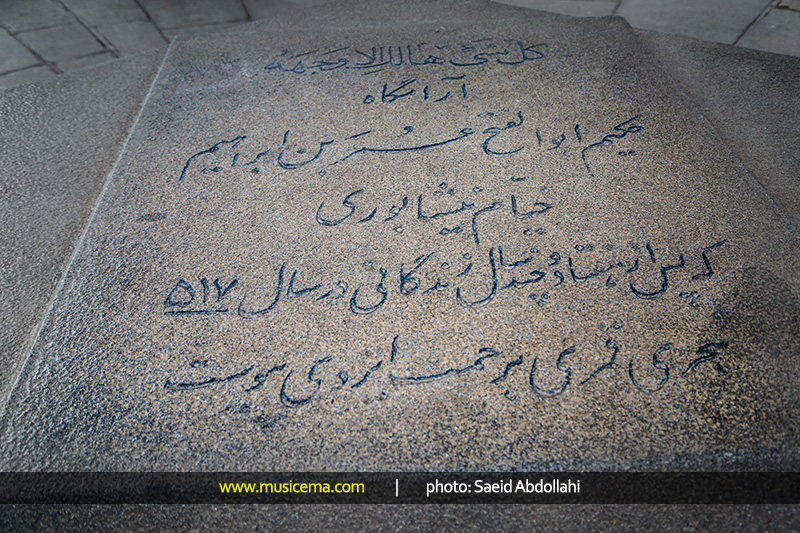 کل شیء هالک الا وجهه
آرامگاه
حکیم ابوالفتح عمر بن ابراهیم
خیام نیشابوری
که پس از هفتاد و چند سال زندگانی در سال ۵۱۷
هجری قمری برحمت ایزدی پیوست
www.musicema.com | photo: Saeid Abdollahi